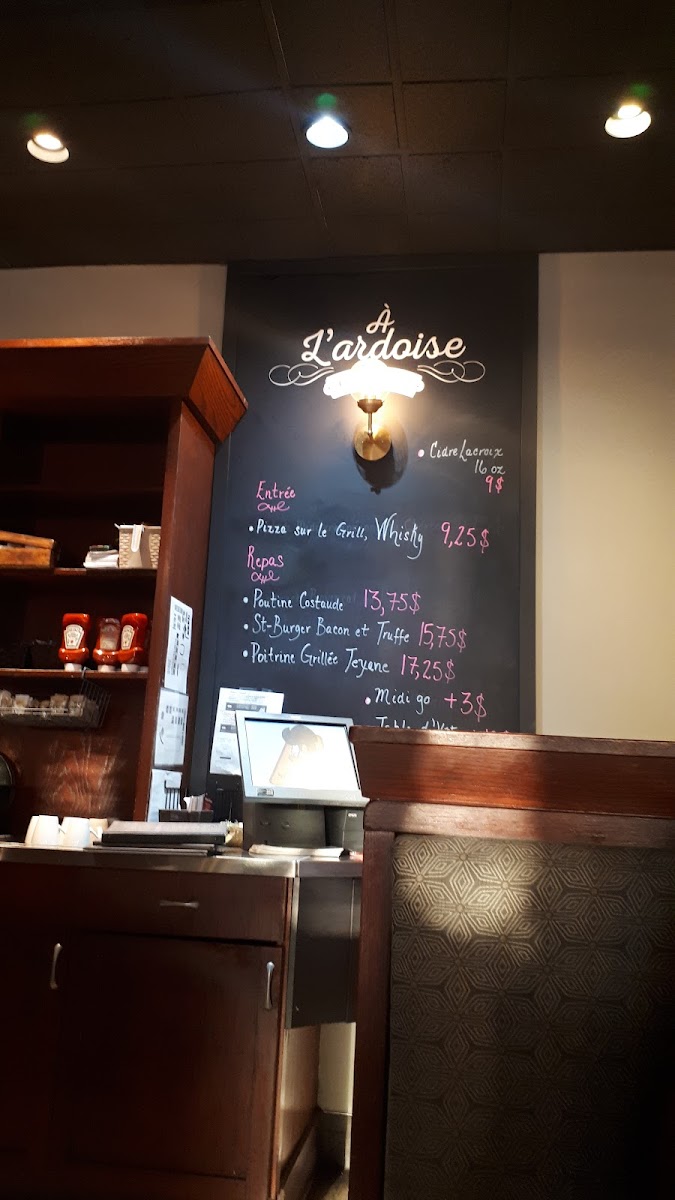 À
L'ardoise
• Cidre Lacroix
16 oz
9$
Entrée
• Pizza sur le Grill, Whisky 9,25$
Repas
• Poutine Costaude 13,75$
• St-Burger Bacon et Truffe 15,75$
• Poitrine Grillée Texane 17,25$
• Midi go +3$